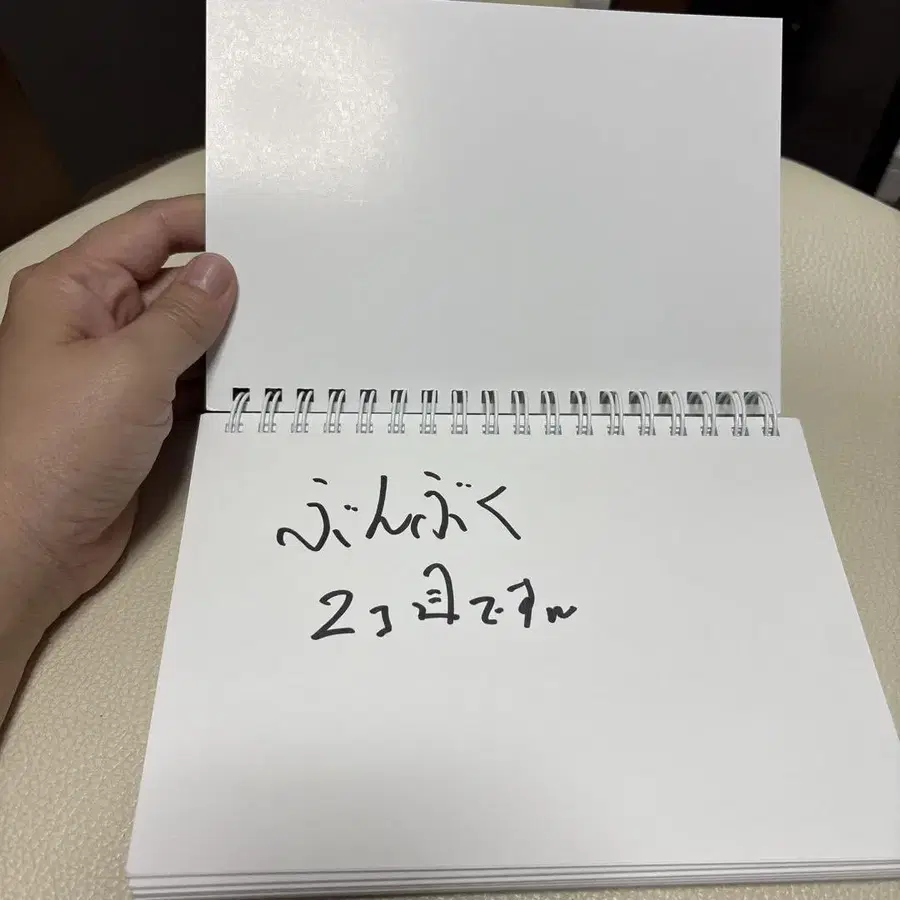 ぶんぶく
2コ目です〜